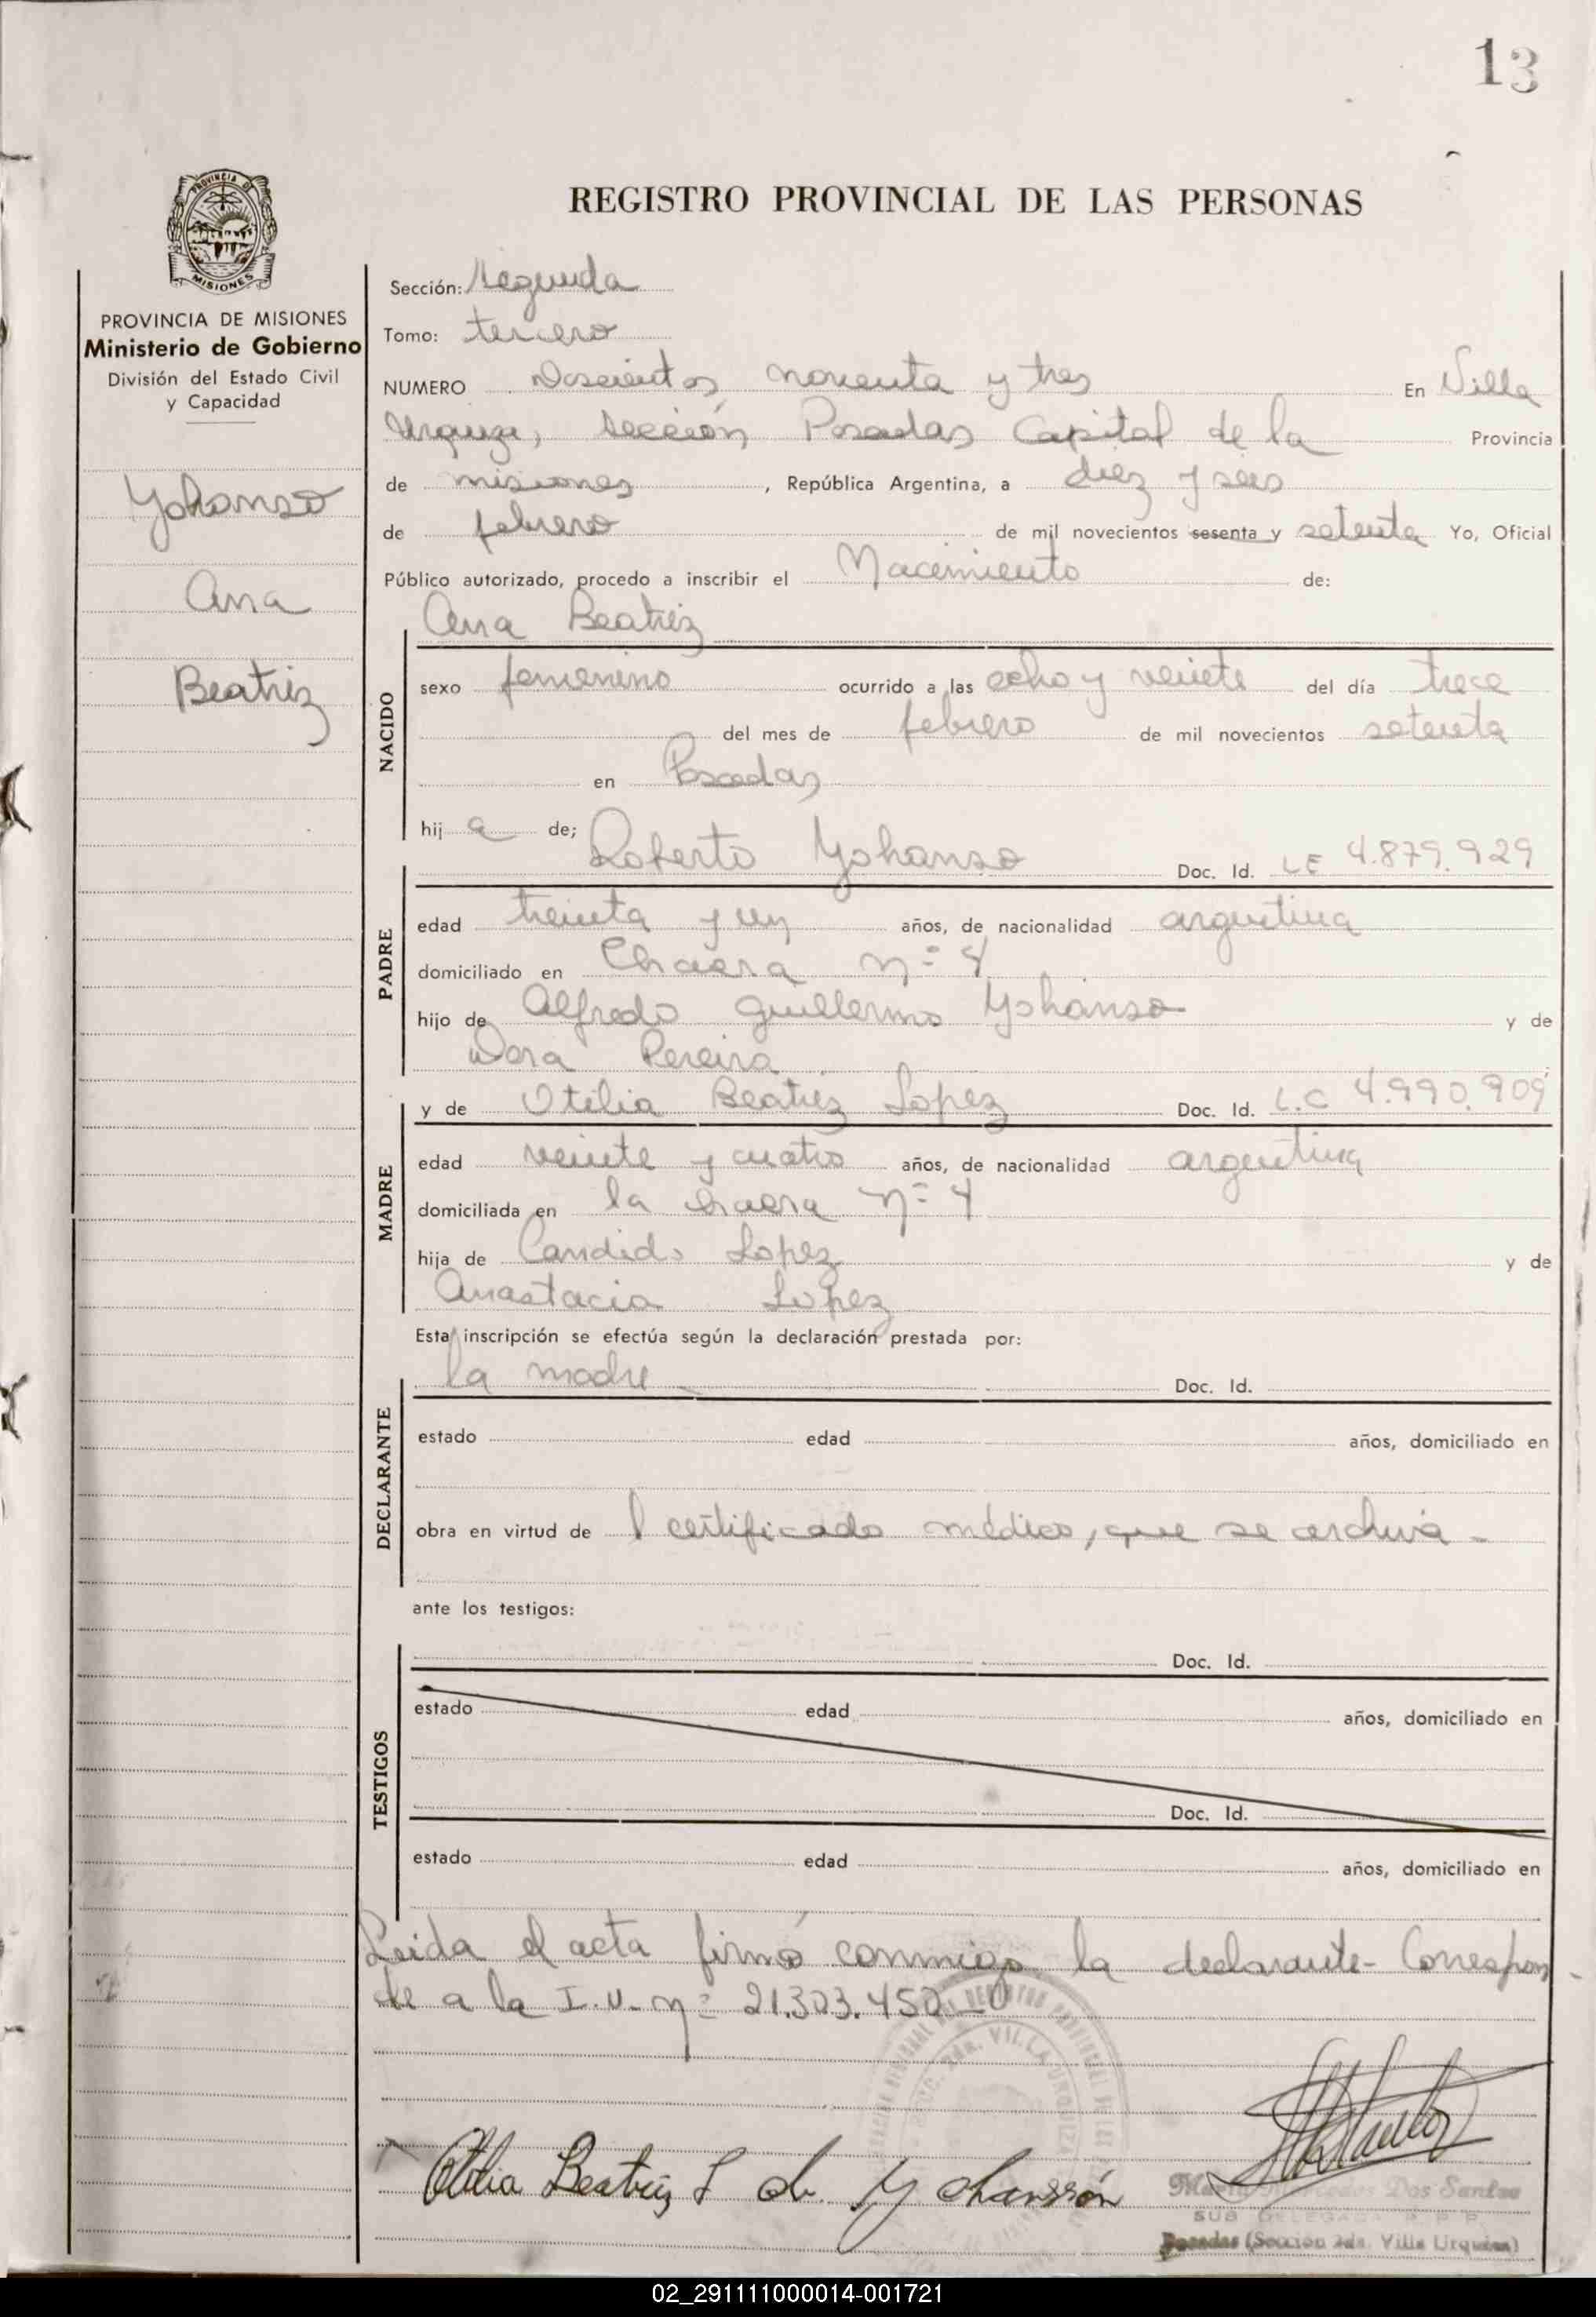 13
PROVINCIA DE
MISIONES
REGISTRO PROVINCIAL DE LAS PERSONAS
PROVINCIA DE MISIONES
Ministerio de Gobierno
División del Estado Civil
y Capacidad
Yohanso
Ana
Beatriz
Sección: Segunda
Tomo: tercero
NUMERO Doscientos noventa y tres En Villa
Urquiza, Sección Posadas Capital de la Provincia
de misiones, República Argentina, a diez y seis
de febrero de mil novecientos sesenta y setenta Yo, Oficial
Público autorizado, procedo a inscribir el Nacimiento de:
Ana Beatriz
NACIDO
sexo femenino ocurrido a las ocho y veinte del día trece
del mes de febrero de mil novecientos setenta
en Posadas
hij a de;
Roberto Yohanso Doc. Id. LE 4.879.929
PADRE
edad treinta y un años, de nacionalidad argentina
domiciliado en Chacra nº 4
hijo de Alfredo Guillermo Yohanso y de
Dora Pereira
y de Otilia Beatriz Lopez Doc. Id. L.C 4.990.909
MADRE
edad veinte y cuatro años, de nacionalidad argentina
domiciliada en la chacra nº 4
hija de Candido Lopez y de
Anastacia Lopez
Esta inscripción se efectúa según la declaración prestada por:
la madre Doc. Id.
DECLARANTE
estado edad años, domiciliado en
obra en virtud de l certificado médico, que se archiva -
ante los testigos:
Doc. Id.
TESTIGOS
estado edad años, domiciliado en
Doc. Id.
estado edad años, domiciliado en
Leida el acta firmó conmigo la declarante - Correspon
de a la I.U. nº 21.303.450
Otilia Beatriz L de Yohanssón
Dos Santos
SUB DELEGADA R.P.P.
Posadas (Sección 2da. Villa Urquiza)
02_291111000014-001721